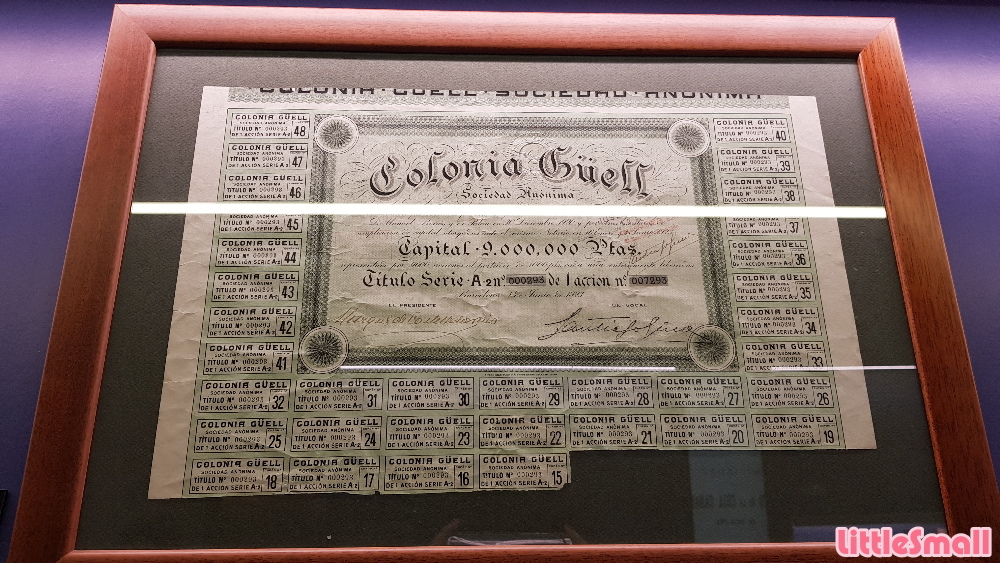 COLONIA · GÜELL · SOCIEDAD · ANÓNIMA
Colonia Güell
Sociedad Anónima
Capital 9.000.000 Ptas.
Titulo Serie A-2 nº 000293 de 1 accion nº 007293
EL PRESIDENTE
UN VOCAL
COLONIA GÜELL
SOCIEDAD ANÓNIMA
TÍTULO Nº 000293
DE 1 ACCIÓN SERIE A-2
48
COLONIA GÜELL
SOCIEDAD ANÓNIMA
TÍTULO Nº 000293
DE 1 ACCIÓN SERIE A-2
47
COLONIA GÜELL
SOCIEDAD ANÓNIMA
TÍTULO Nº 000293
DE 1 ACCIÓN SERIE A-2
46
SOCIEDAD ANÓNIMA
TÍTULO Nº 000293
DE 1 ACCIÓN SERIE A-2
45
COLONIA GÜELL
SOCIEDAD ANÓNIMA
TÍTULO Nº 000293
DE 1 ACCIÓN SERIE A-2
44
COLONIA GÜELL
SOCIEDAD ANÓNIMA
TÍTULO Nº 000293
DE 1 ACCIÓN SERIE A-2
43
COLONIA GÜELL
SOCIEDAD ANÓNIMA
TÍTULO Nº 000293
DE 1 ACCIÓN SERIE A-2
42
COLONIA GÜELL
SOCIEDAD ANÓNIMA
TÍTULO Nº 000293
DE 1 ACCIÓN SERIE A-2
41
COLONIA GÜELL
SOCIEDAD ANÓNIMA
TÍTULO Nº 000293
DE 1 ACCIÓN SERIE A-2
40
COLONIA GÜELL
SOCIEDAD ANÓNIMA
TÍTULO Nº 000293
DE 1 ACCIÓN SERIE A-2
39
COLONIA GÜELL
SOCIEDAD ANÓNIMA
TÍTULO Nº 000293
DE 1 ACCIÓN SERIE A-2
38
SOCIEDAD ANÓNIMA
TÍTULO Nº 000293
DE 1 ACCIÓN SERIE A-2
37
COLONIA GÜELL
SOCIEDAD ANÓNIMA
TÍTULO Nº 000293
DE 1 ACCIÓN SERIE A-2
36
COLONIA GÜELL
SOCIEDAD ANÓNIMA
TÍTULO Nº 000293
DE 1 ACCIÓN SERIE A-2
35
COLONIA GÜELL
SOCIEDAD ANÓNIMA
TÍTULO Nº 000293
DE 1 ACCIÓN SERIE A-2
34
COLONIA GÜELL
SOCIEDAD ANÓNIMA
TÍTULO Nº 000293
33
COLONIA GÜELL
SOCIEDAD ANÓNIMA
TÍTULO Nº 000293
DE 1 ACCIÓN SERIE A-2
32
COLONIA GÜELL
SOCIEDAD ANÓNIMA
TÍTULO Nº 000293
DE 1 ACCIÓN SERIE A-2
31
COLONIA GÜELL
SOCIEDAD ANÓNIMA
TÍTULO Nº 000293
DE 1 ACCIÓN SERIE A-2
30
COLONIA GÜELL
SOCIEDAD ANÓNIMA
TÍTULO Nº 000293
DE 1 ACCIÓN SERIE A-2
29
COLONIA GÜELL
SOCIEDAD ANÓNIMA
TÍTULO Nº 000293
DE 1 ACCIÓN SERIE A-2
28
COLONIA GÜELL
SOCIEDAD ANÓNIMA
TÍTULO Nº 000293
DE 1 ACCIÓN SERIE A-2
27
COLONIA GÜELL
SOCIEDAD ANÓNIMA
TÍTULO Nº 000293
DE 1 ACCIÓN SERIE A-2
26
COLONIA GÜELL
SOCIEDAD ANÓNIMA
TÍTULO Nº 000293
DE 1 ACCIÓN SERIE A-2
25
COLONIA GÜELL
SOCIEDAD ANÓNIMA
TÍTULO Nº 000293
DE 1 ACCIÓN SERIE A-2
24
COLONIA GÜELL
SOCIEDAD ANÓNIMA
TÍTULO Nº 000293
DE 1 ACCIÓN SERIE A-2
23
COLONIA GÜELL
SOCIEDAD ANÓNIMA
TÍTULO Nº 000293
DE 1 ACCIÓN SERIE A-2
22
COLONIA GÜELL
SOCIEDAD ANÓNIMA
TÍTULO Nº 000293
DE 1 ACCIÓN SERIE A-2
21
COLONIA GÜELL
SOCIEDAD ANÓNIMA
TÍTULO Nº 000293
DE 1 ACCIÓN SERIE A-2
20
COLONIA GÜELL
SOCIEDAD ANÓNIMA
TÍTULO Nº 000293
DE 1 ACCIÓN SERIE A-2
19
COLONIA GÜELL
SOCIEDAD ANÓNIMA
TÍTULO Nº 000293
DE 1 ACCIÓN SERIE A-2
18
COLONIA GÜELL
SOCIEDAD ANÓNIMA
TÍTULO Nº 000293
DE 1 ACCIÓN SERIE A-2
17
COLONIA GÜELL
SOCIEDAD ANÓNIMA
TÍTULO Nº 000293
DE 1 ACCIÓN SERIE A-2
16
COLONIA GÜELL
SOCIEDAD ANÓNIMA
TÍTULO Nº 000293
DE 1 ACCIÓN SERIE A-2
15
LittleSmall